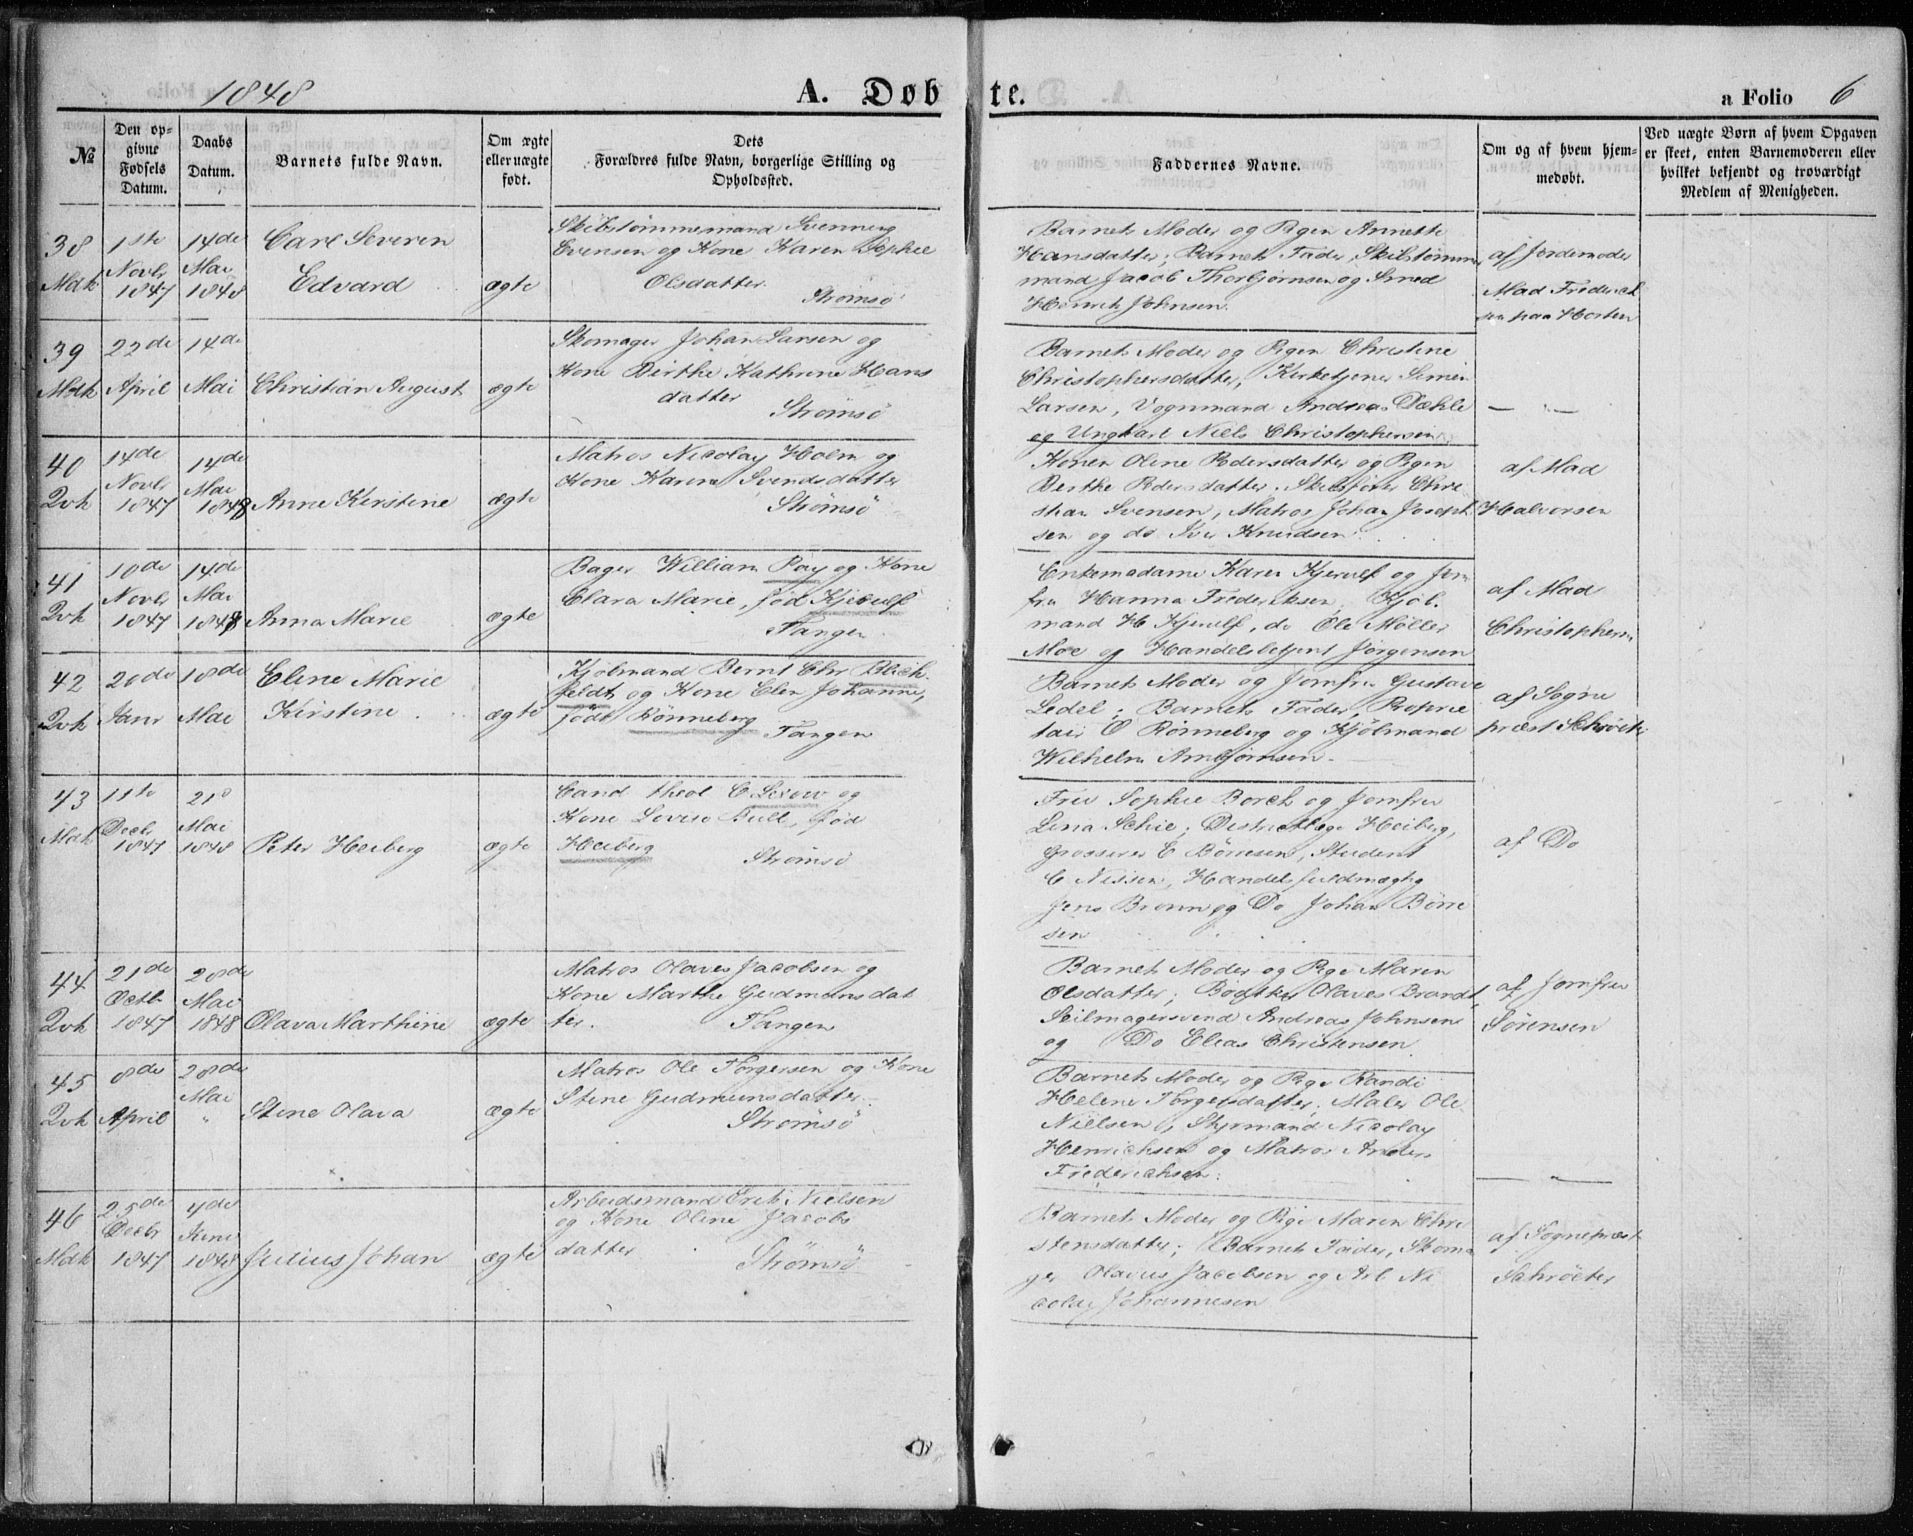 1848
A. Døbte.
a Folio 6
№
Den opgivne Fødsels Datum.
Daabs Datum.
Barnets fulde Navn.
Om ægte eller uægte født.
Dets Forældres fulde Navn, borgerlige Stilling og Opholdssted.
Faddernes Navne.
Om og af hvem hjemmedøbt.
Ved uægte Børn af hvem Opgaven er skeet, enten Barnemoderen eller hvilket bekjendt og troværdigt Medlem af Menigheden.
38 Mdk
1ste Novbr 1847
14de Mai 1848
Carl Severen
Edvard
ægte
Skibstømmermand Svenning
Evensen og Kone Karen Sophie
Olsdatter
Strømsö
Barnets Moder og Pigen Annette
Hansdatter; Barnets Fader, Skibstømmer
mand Jacob Thorbjørnsen og Smed
Henrik Johnsen.
af Jordemoder
Mad Frederick
sen paa Horten
39 Mdk
22de April
14de Mai
Christian August
ægte
Skomager Johan Larsen og
Kone Birthe Kathrine Hans
datter
Strømsö
Barnets Moder og Pigen Christine
Christophersdatter, Kirketjener Simen
Larsen, Vognmand Andreas Dæhle
og Ungkarl Niels Christophersen
— " —
40 Qvk
14de Novbr 1847
14de Mai 1848
Anne Kirstine
ægte
Matros Nicolay Holm og
Kone Karine Svendsdatter
Strømsö
Konen Oline Pedersdatter og Pigen
Berthe Pedersdatter. Skibsfører Chri
stian Svensen, Matros Johan Joseph
sen og do Iver Knudsen
af Mad
Halvorsen
41 Qvk
10de Novbr 1847
14de Mai 1848
Anna Marie
ægte
Bager William Pay og Kone
Clara Marie, fød Kjerulf
Tangen
Enkemadame Karen Kjerulf og Jom
fru Hanna Frederiksen, Kjöb
mand H Kjerulf, do Ole Møller
Moe og Handelsbetjent Jörgensen
af Mad
Christophersen
42 Qvk
20de Janr
18de Mai
Eline Marie
Kirstine
ægte
Kjöbmand Bernt Chr Blich
feldt og Kone Elen Johanne,
född Rönneberg
Tangen
Barnets Moder og Jomfru Gustave
Ledel; Barnets Fader, Proprie
tair O Rönneberg og Kjöbmand
Wilhelm Arnbjørnsen
af Sogne
præst Schröeter
43 Mdk
11te Decbr 1847
21d Mai 1848
Peter Heiberg
ægte
Cand theol C Lexow og
Kone Lovise Bull, fød
Heiberg
Strømsö
Fru Sophie Borch og Jomfru
Lina Schie; Districtlæge Heiberg,
Grosserer C Börresen, Student
C Nissen, Handelsfuldmægtig
Jens Bruun og Do Johan Börre
sen
af Do
44 Qvk
21de Octb 1847
28de Mai 1848
Olava Marthine
ægte
Matros Olaves Jacobsen og
Kone Marthe Gudmunsdat
ter.
Tangen
Barnets Moder og Pige Maren
Olsdatter; Bödtker Olaves Brandt,
Seilmagersvend Andreas Johnsen
og Do Elias Christensen
af Jomfru
Sørensen
45 Qvk
8de April
28de Mai "
Stine Olava
ægte
Matros Ole Torgersen og Kone
Stine Gudmunsdatter
Strømsö
Barnets Moder og Pige Randi
Helene Torgersdatter; Maler Ole
Nielsen, Styrmand Nicolay
Henrichsen og Matros Anders
Frederichsen.
46 Mdk
25de Decbr 1847
4de Juni 1848
Julius Johan
ægte
Arbeidsmand Erik Nielsen
og Kone Oline Jacobs
datter
Strømsö
Barnets Moder og Pige Maren Chri
stensdatter; Barnets Fader, Skoma
ger Olavus Jacobsen og Arb Ni
colai Johannesen
af Sognepræst
Schröeter